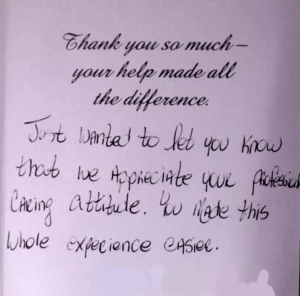 Thank you so much –
your help made all
the difference.
Just Wanted to let you Know
that we Appreciate your profession
CARing attitude. You Made this
Whole experience easier.